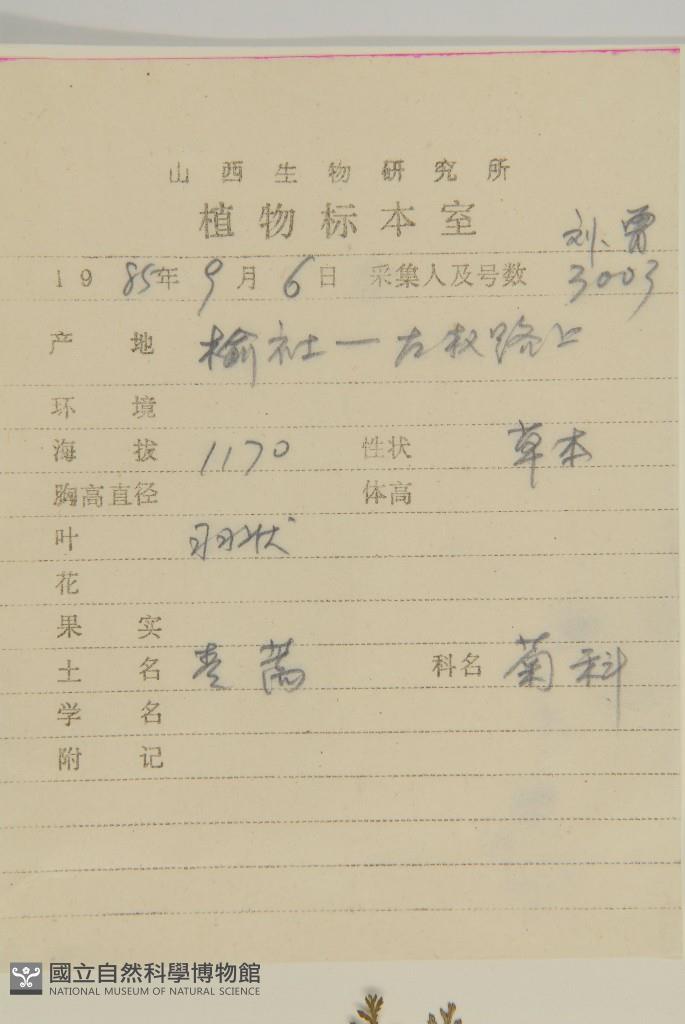 山西生物研究所
植物标本室
刘、曾
1985年9月6日 采集人及号数 3003
产地 榆社一左权路上
环境
海拔 1170 性状 草本
胸高直径 体高
叶 羽状
花
果实
土名 青蒿 科名 菊科
学名
附记
國立自然科學博物館
NATIONAL MUSEUM OF NATURAL SCIENCE